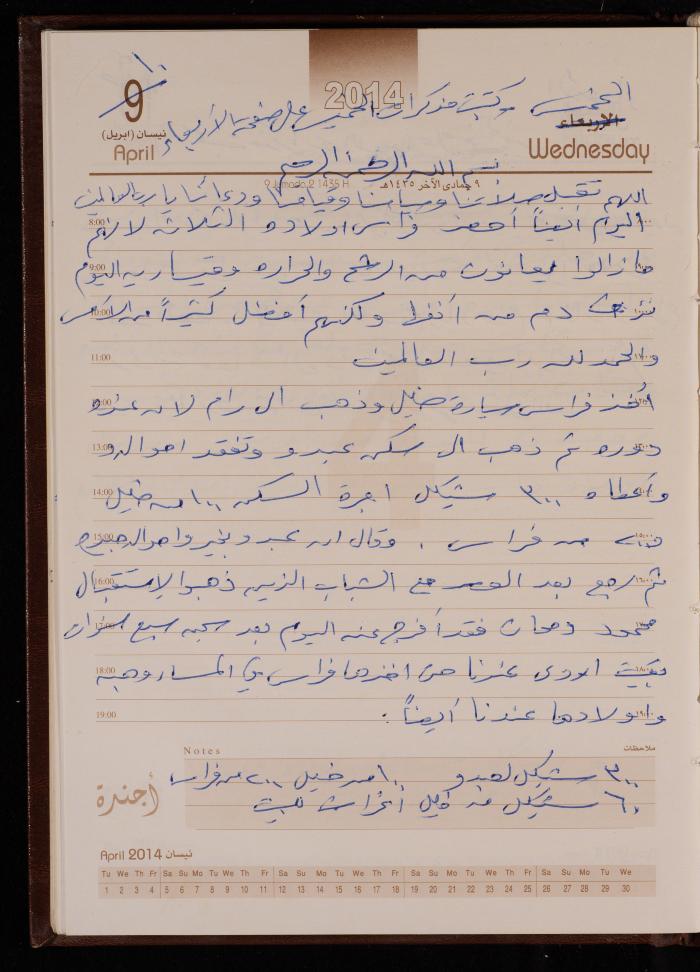 ١٠
9
نيسان (ابريل)
April
2014
الخميس
وكتبت مذكرات الخميس على صفحة الأربعاء
الاربعاء
Wednesday
بسم الله الرحمن الرحيم
9 Jumada 2 1435 H
٩ جمادى الآخر ١٤٣٥هـ
اللهم تقبل صلاتنا وصيامنا وقيامنا ودعائنا يا رب العالمين
8:00 اليوم أيضاً أحضر فراس اولاده الثلاثة لانهم
9:00 ما زالوا يعانون من الرشح والحرارة وقيس اليوم
10:00 نزف دم من أنفه ولكنهم أفضل كثيراً من الأمس
11:00 والحمد لله رب العالمين
أخذ فراس سيارة خليل وذهب الى رام لان عنده
13:00 دوره ثم ذهب الى سكن عبد و وتفقد احواله
14:00 وأعطاه ٣٠٠ شيكل اجرة السكن ١٠٠ من خليل
15:00 من فراس . وقال ان عبد و بخير واحواله جيده
16:00 ثم رجع بعد العصر مع الشباب الذين ذهبوا لإستقبال
17:00 محمود فقد أفرج عنه اليوم بعد سجن سبع سنوات
18:00 بقيت عندنا حتى اخذها فراس في المساء وهبه
19:00 واولادها عندنا أيضاً .
Notes
ملاحظات
٣٠٠ شيكل لعبدو ١٠٠ من خليل ٢٠٠ من فراس
٦٠ شيكل من خليل أغراض للبيت
أجندة
April 2014 نيسان
Tu We Th Fr Sa Su Mo Tu We Th Fr Sa Su Mo Tu We Th Fr Sa Su Mo Tu We Th Fr Sa Su Mo Tu We
1 2 3 4 5 6 7 8 9 10 11 12 13 14 15 16 17 18 19 20 21 22 23 24 25 26 27 28 29 30